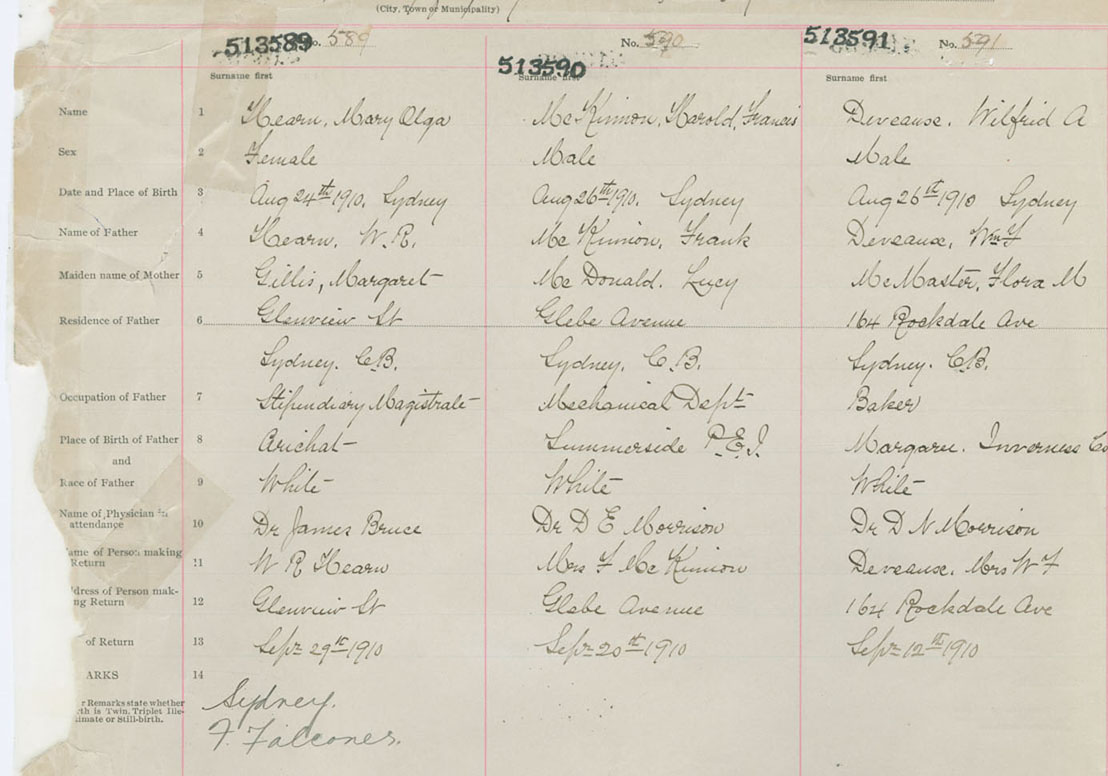 (City, Town or Municipality)
513589 No. 589
513590 No. 590
513591 No. 591
Surname first Surname first Surname first
Name 1 Hearn, Mary Olga McKinnon, Harold, Francis Deveause, Wilfrid A
Sex 2 Female Male Male
Date and Place of Birth 3 Aug 24th 1910, Sydney Aug 26th 1910, Sydney Aug 26th 1910 Sydney
Name of Father 4 Hearn, W. R. McKinnon, Frank Deveaux, Wm F
Maiden name of Mother 5 Gillis, Margaret McDonald, Lucy McMaster, Flora M
Residence of Father 6 Glenview St Glebe Avenue 164 Rockdale Ave
Sydney, C.B. Sydney, C.B. Sydney, C.B.
Occupation of Father 7 Stipendiary Magistrate Mechanical Dept Baker
Place of Birth of Father 8 Arichat Summerside P.E.I. Margaree, Inverness Co
and
Race of Father 9 White White White
Name of Physician in
attendance 10 Dr James Bruce Dr D E Morrison Dr D N Morrison
ame of Person making
Return 11 W R Hearn Mrs F McKinnon Deveause, Mrs W F
ddress of Person mak-
ng Return 12 Glenview St Glebe Avenue 164 Rockdale Ave
of Return 13 Sept 29th 1910 Sept 20th 1910 Sept 12th 1910
ARKS 14
r Remarks state whether
rth is Twin, Triplet Ille-
timate or Still-birth.
Sydney.
F. Falconer.